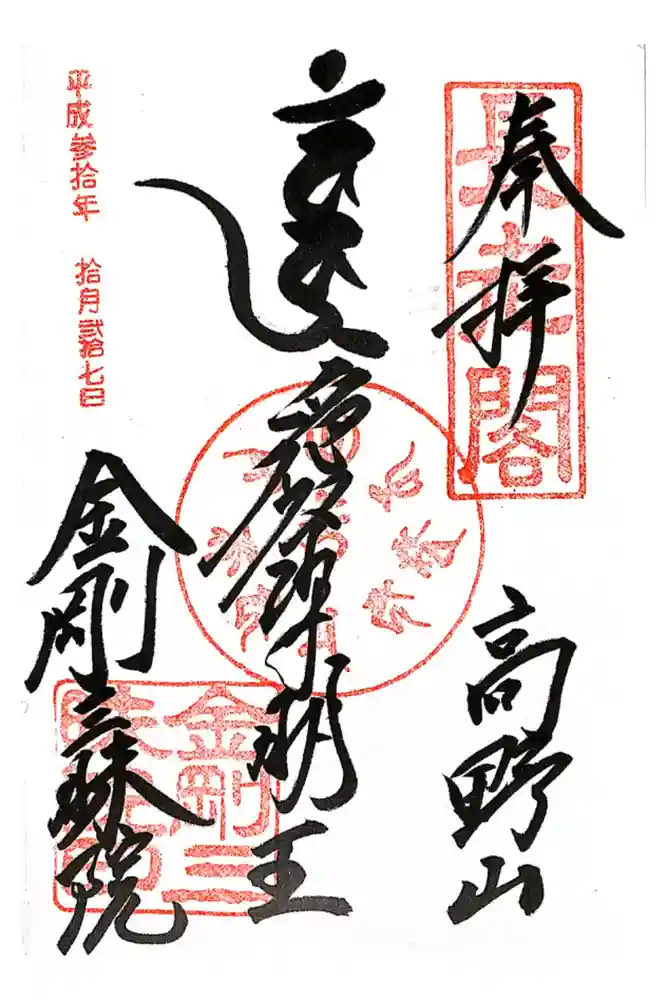 長老閣
奉拝
高野山
愛染明王
平成参拾年 拾月弐拾七日
金剛三昧院
金剛三
昧院印